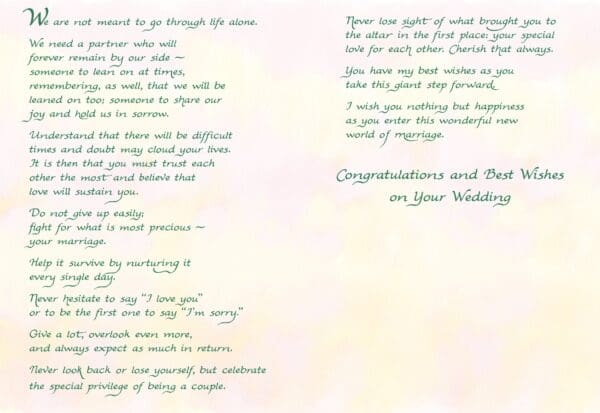 We are not meant to go through life alone.
We need a partner who will
forever remain by our side ~
someone to lean on at times,
remembering, as well, that we will be
leaned on too; someone to share our
joy and hold us in sorrow.
Understand that there will be difficult
times and doubt may cloud your lives.
It is then that you must trust each
other the most and believe that
love will sustain you.
Do not give up easily;
fight for what is most precious ~
your marriage.
Help it survive by nurturing it
every single day.
Never hesitate to say “I love you”
or to be the first one to say “I'm sorry.”
Give a lot, overlook even more,
and always expect as much in return.
Never look back or lose yourself, but celebrate
the special privilege of being a couple.
Never lose sight of what brought you to
the altar in the first place: your special
love for each other. Cherish that always.
You have my best wishes as you
take this giant step forward.
I wish you nothing but happiness
as you enter this wonderful new
world of marriage.
Congratulations and Best Wishes
on Your Wedding